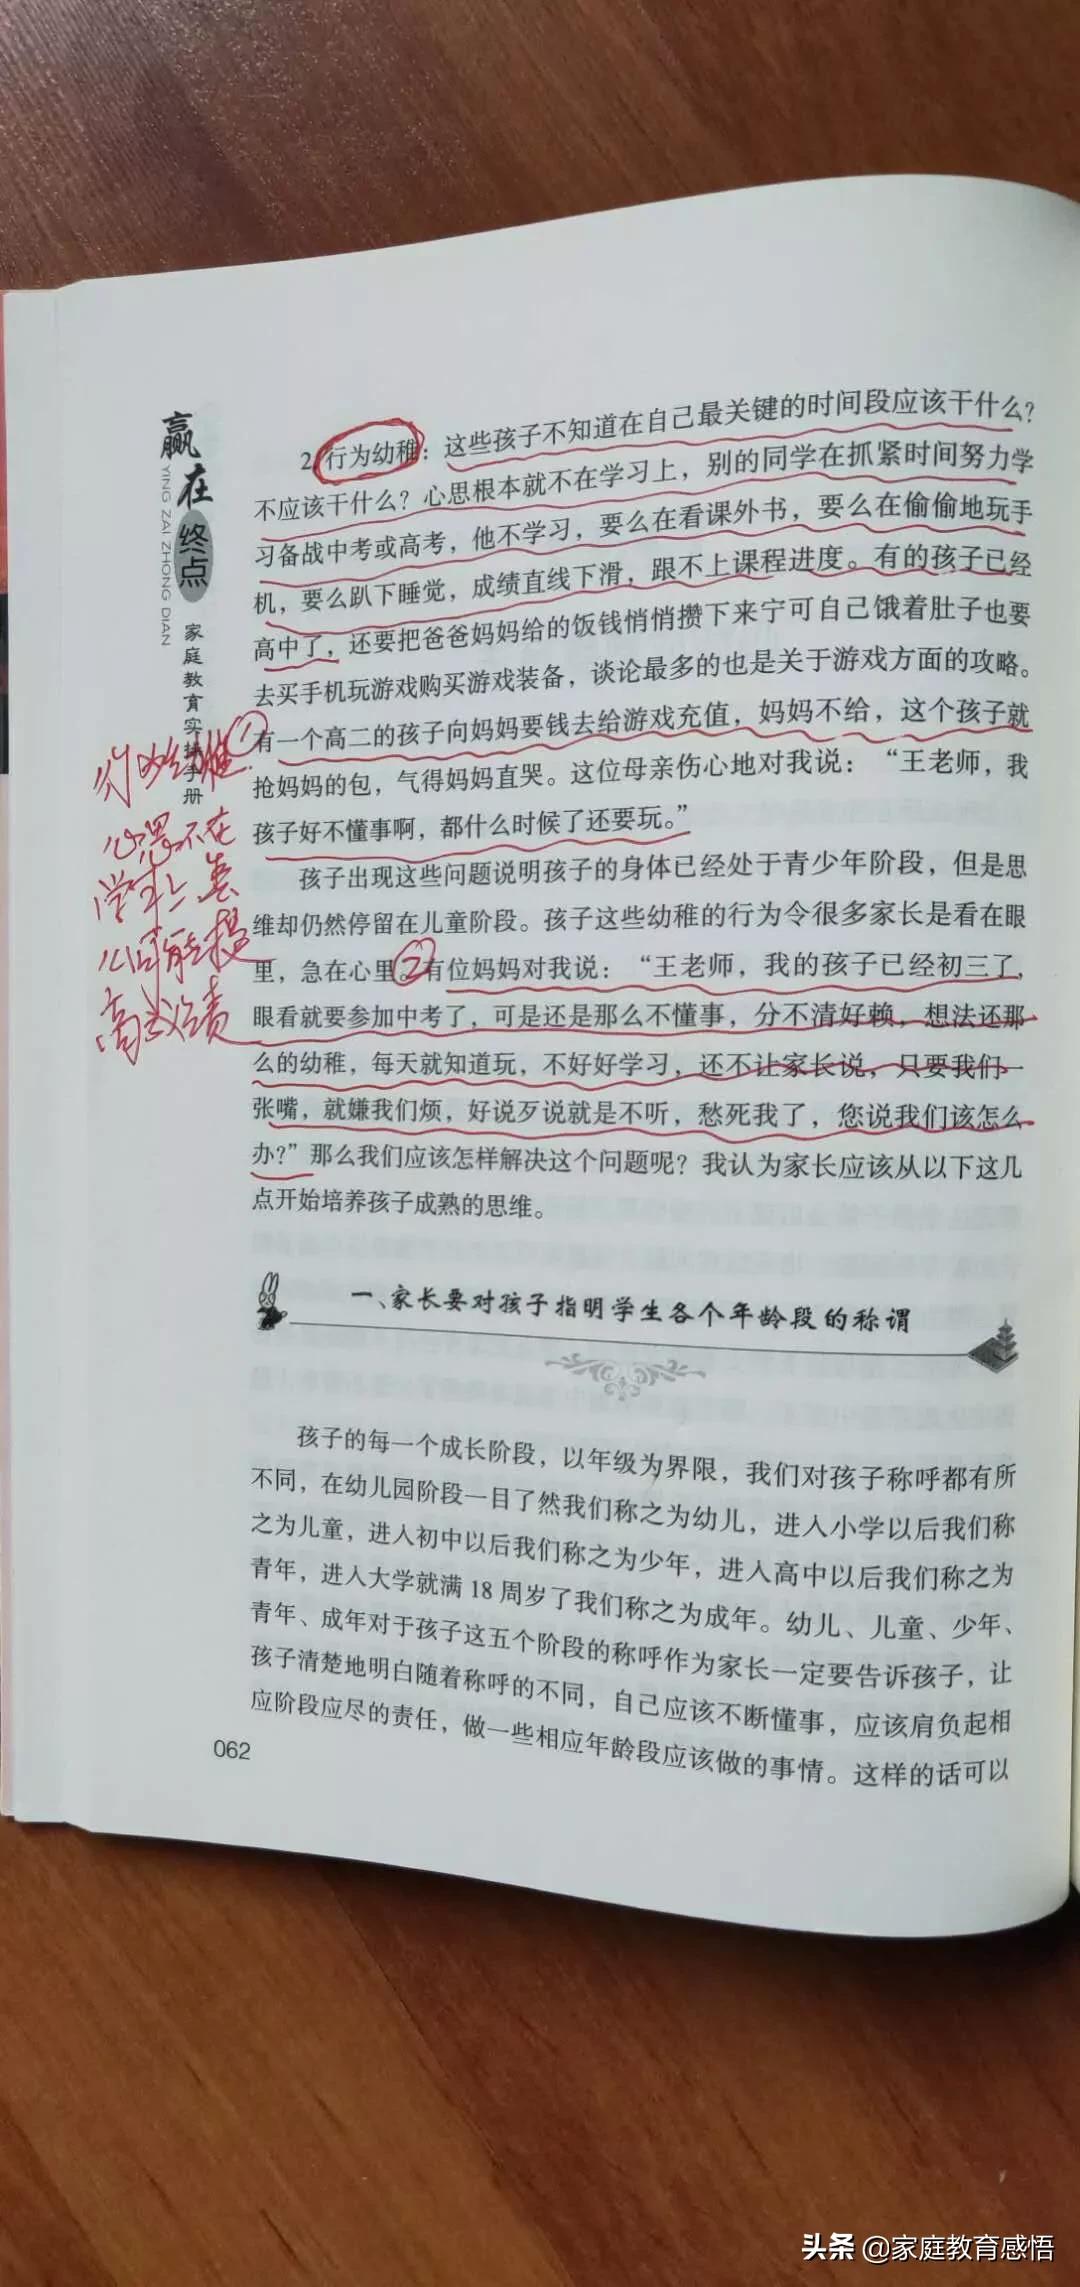 赢在终点
YING ZAI ZHONG DIAN
家庭教育实操手册
2.行为幼稚：这些孩子不知道在自己最关键的时间段应该干什么？
不应该干什么？心思根本就不在学习上，别的同学在抓紧时间努力学
习备战中考或高考，他不学习，要么在看课外书，要么在偷偷地玩手
机，要么趴下睡觉，成绩直线下滑，跟不上课程进度。有的孩子已经
高中了，还要把爸爸妈妈给的饭钱悄悄攒下来宁可自己饿着肚子也要
去买手机玩游戏购买游戏装备，谈论最多的也是关于游戏方面的攻略。
①
有一个高二的孩子向妈妈要钱去给游戏充值，妈妈不给，这个孩子就
抢妈妈的包，气得妈妈直哭。这位母亲伤心地对我说：“王老师，我
孩子好不懂事啊，都什么时候了还要玩。”
行为幼稚
心思不在
学习上
能提
高成绩
孩子出现这些问题说明孩子的身体已经处于青少年阶段，但是思
维却仍然停留在儿童阶段。孩子这些幼稚的行为令很多家长是看在眼
里，急在心里。②有位妈妈对我说：“王老师，我的孩子已经初三了，
眼看就要参加中考了，可是还是那么不懂事，分不清好赖，想法还那
么的幼稚，每天就知道玩，不好好学习，还不让家长说，只要我们一
张嘴，就嫌我们烦，好说歹说就是不听，愁死我了，您说我们该怎么
办？”那么我们应该怎样解决这个问题呢？我认为家长应该从以下这几
点开始培养孩子成熟的思维。
一、家长要对孩子指明学生各个年龄段的称谓
孩子的每一个成长阶段，以年级为界限，我们对孩子称呼都有所
不同，在幼儿园阶段一目了然我们称之为幼儿，进入小学以后我们称
之为儿童，进入初中以后我们称之为少年，进入高中以后我们称之为
青年，进入大学就满 18 周岁了我们称之为成年。幼儿、儿童、少年、
青年、成年对于孩子这五个阶段的称呼作为家长一定要告诉孩子，让
孩子清楚地明白随着称呼的不同，自己应该不断懂事，应该肩负起相
应阶段应尽的责任，做一些相应年龄段应该做的事情。这样的话可以
062
头条 @家庭教育感悟